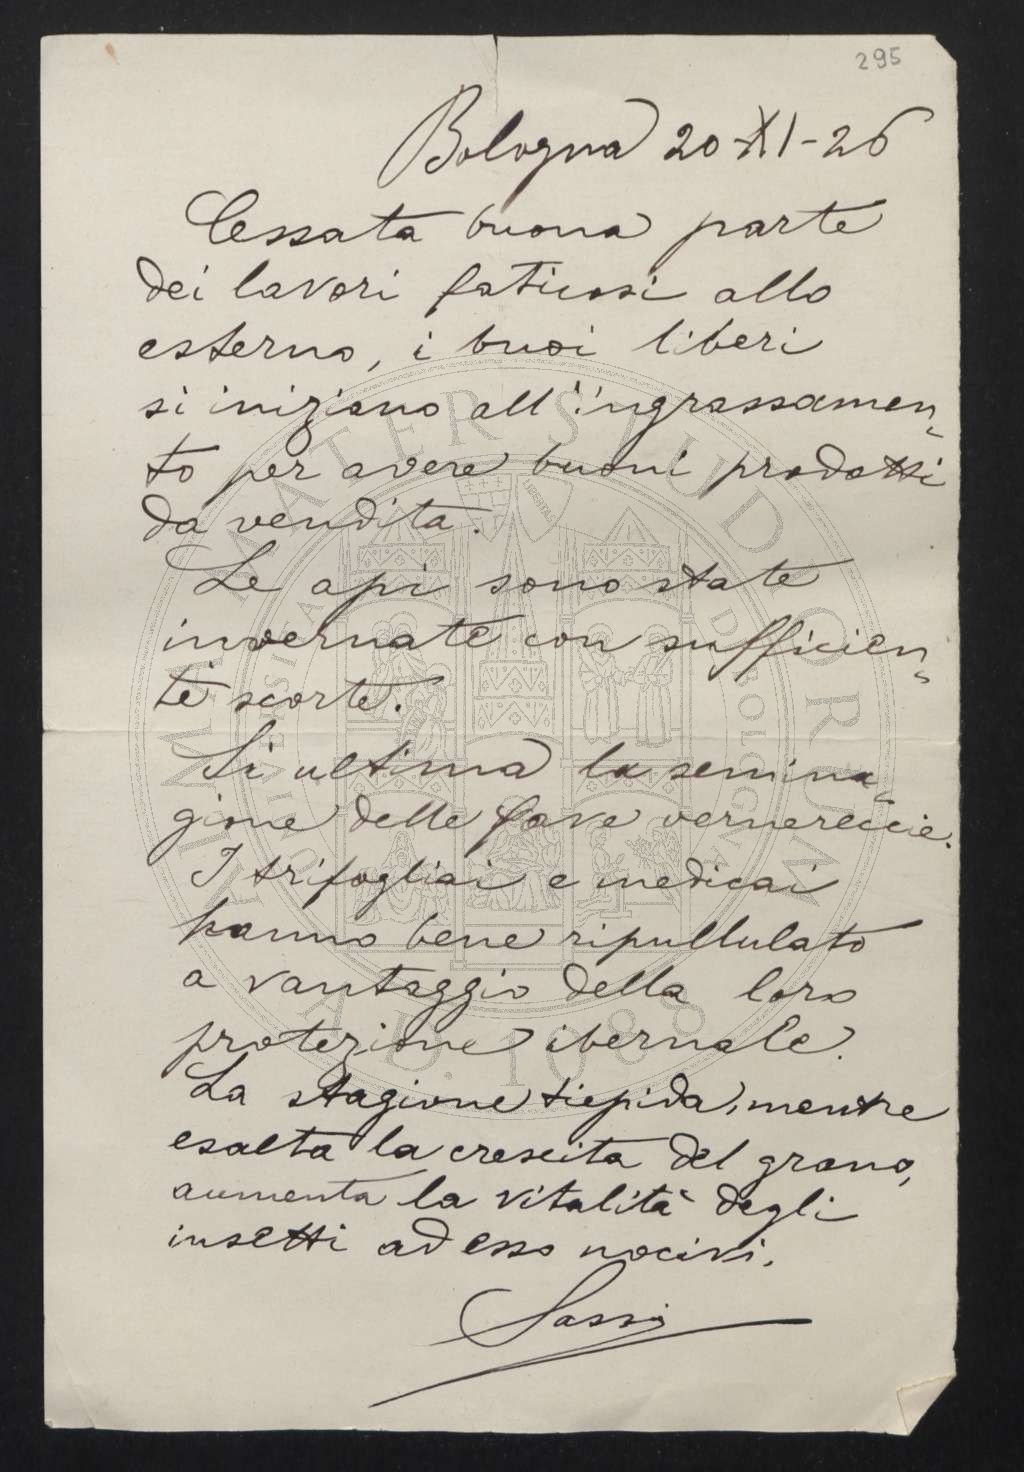 295
Bologna 20-XI-26
Cessata buona parte
dei lavori faticosi allo
esterno, i buoi liberi
si iniziano all'ingrassamen-
to per avere buoni prodotti
da vendita.
Le api sono state
invernate con sufficien-
ti scorte.
Si ultima la semina-
gione delle fave vernereccie.
I trifogliai e medicai
hanno bene ripullulato
a vantaggio della loro
protezione ibernale.
La stagione tiepida, mentre
esalta la crescita del grano,
aumenta la vitalità degli
insetti ad esso nocivi.
Sassi
ALMA MATER STUDIORUM
A.D. 1088
LIBERTAS